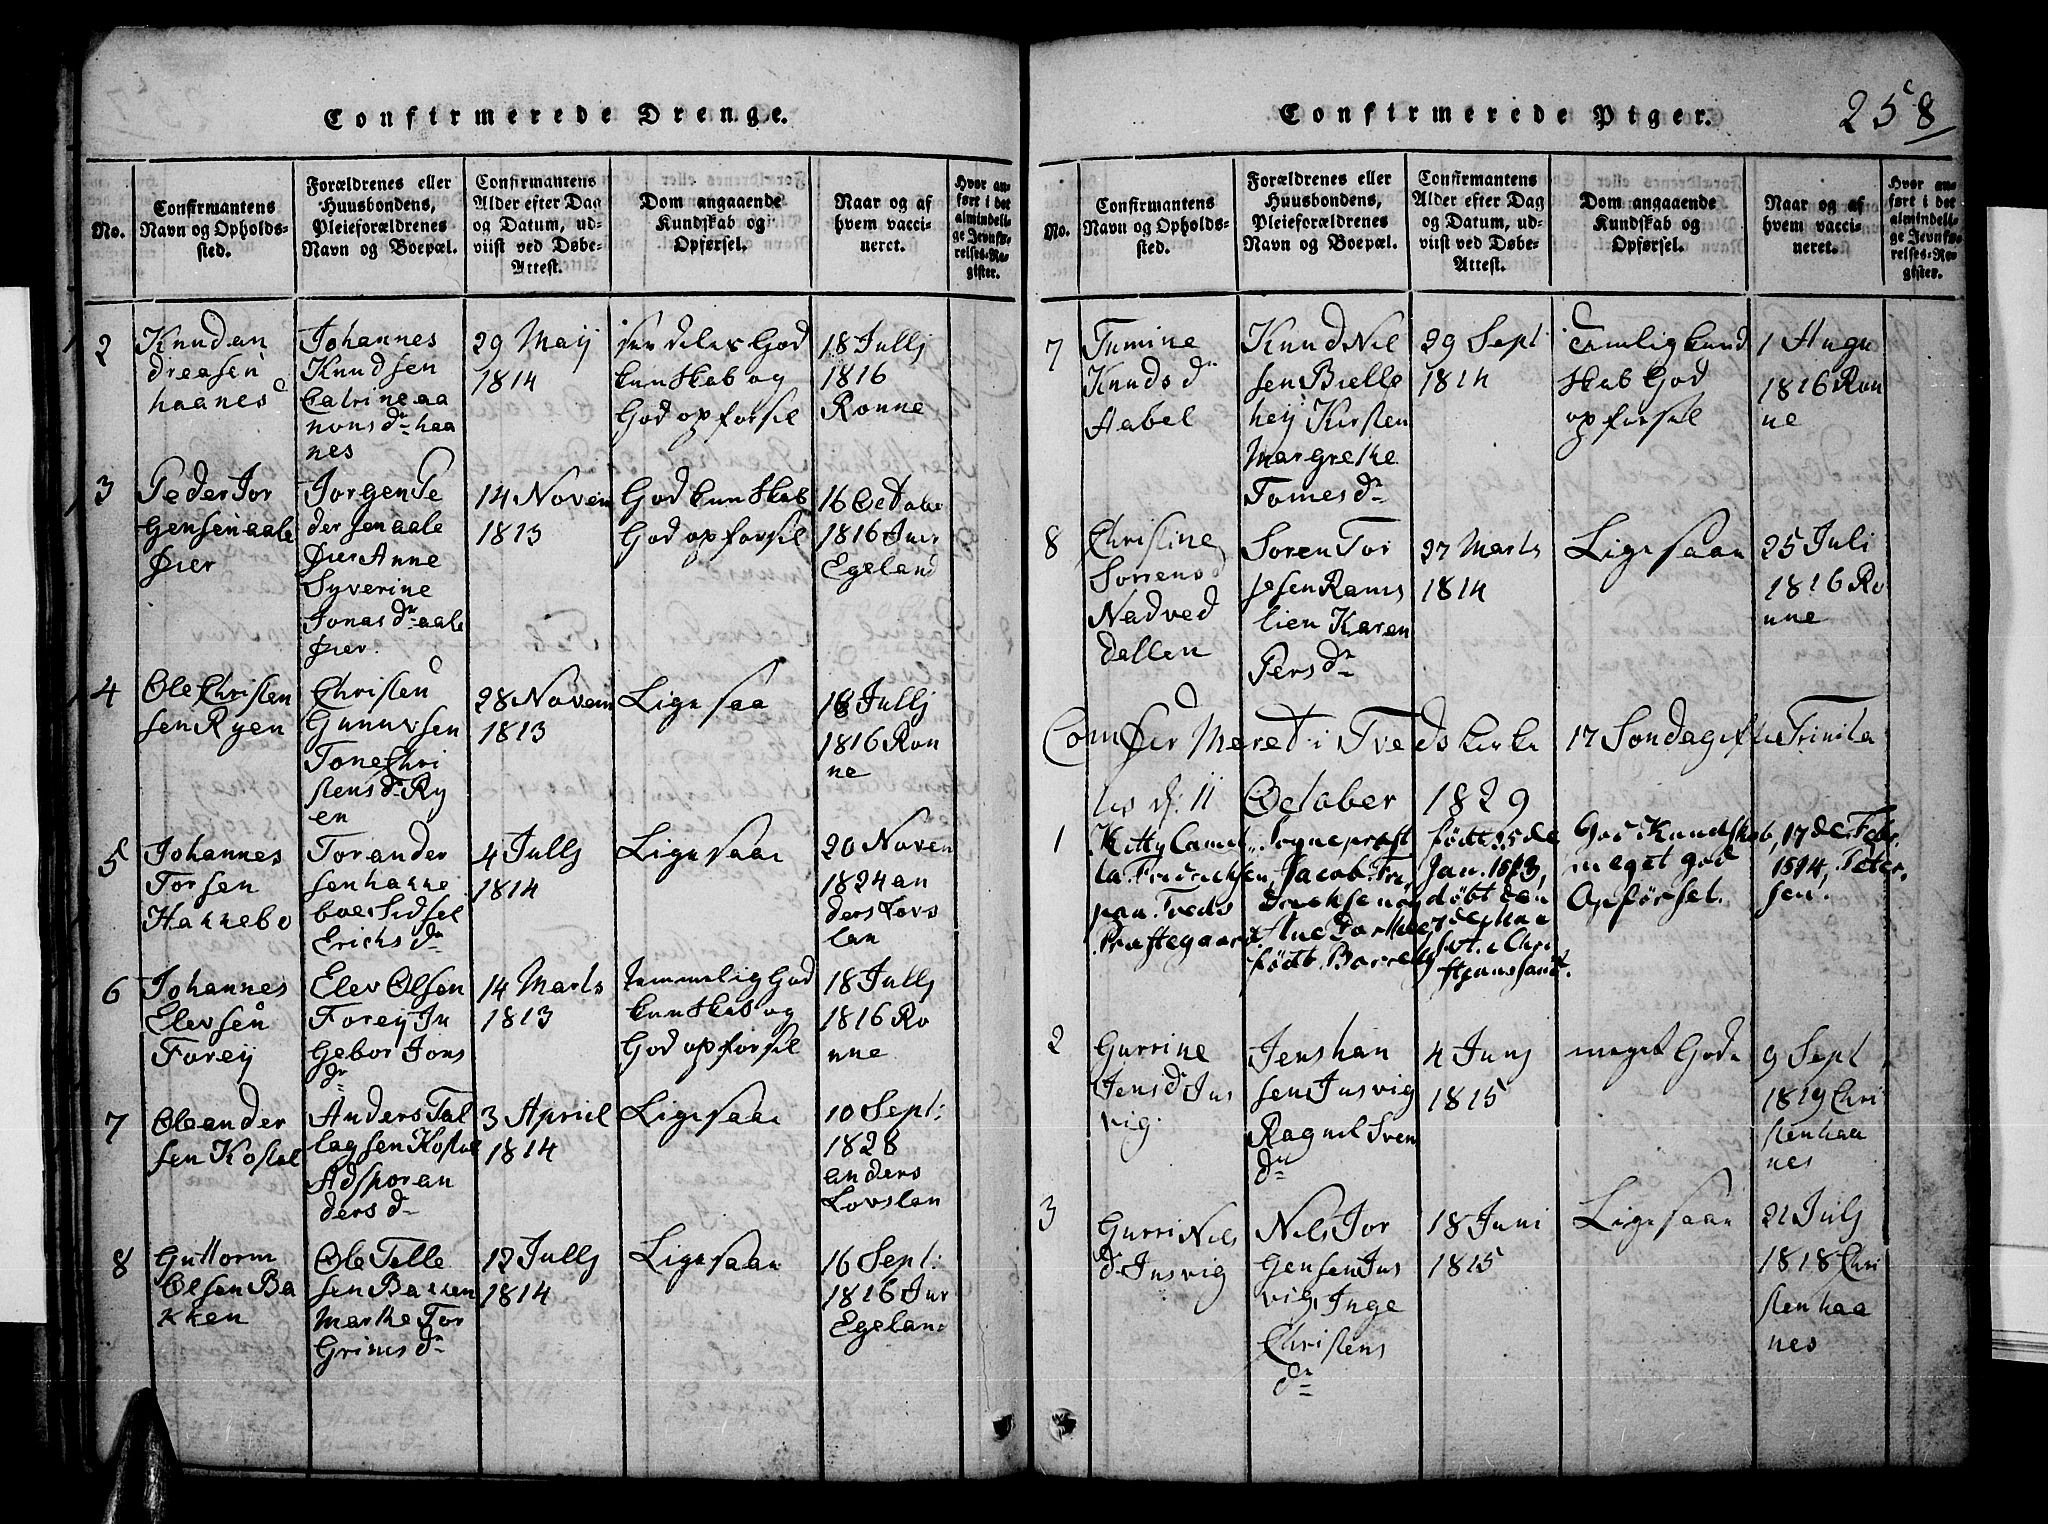 Confirmerede Drenge.
No.
Confirmantens
Navn og Opholds-
sted.
Forældrenes eller
Huusbondens,
Pleieforældrenes
Navn og Boepæl.
Confirmantens
Alder efter Dag
og Datum, ud-
viist ved Døbe-
Attest.
Dom angaaende
Kundskab og
Opførsel.
Naar og af
hvem vacci-
neret.
Hvor an-
ført i det
almindeli-
ge Jevnfø-
relses-Re-
gister.
2
Knud an
dreasen
haanes
Johannes
Knudsen
Catrine aa
nons dr haa
nes
29 Maij
1814
God
kunskab og
God opforsel
18 Jullj
1816
Ronne
3
Peder Jor
gensen aale
Øier
Jorgen Pe
dersen aale
Øier Anne
Syverine
Jonas dr aale
Øier.
14 Novem
1813
God kunskab
God opforsel
16 October
1816 Jver
Egeland
4
Ole Christen
sen Ryen
Christen
Gunuvsen
Tone Chri
stens dr Ry
en
28 Novem
1813
Lige saa
18 Jullj
1816 Ron
ne
5
Johannes
Torsen
Hannebo
Tor ander
sen hanne
boe Sidsel
Erichs dr
4 Jullj
1814
Lige saa
20 Novem
1824 an
ders Lovs
lan
6
Johannes
Elevsen
Forey
Elev Olsen
Forey In
gebor Jons
dr
14 Marts
1813
temmelig God
kunskab og
God opforsel
18 Jullj
1816 Ro
nne
7
Ole ander
sen Kostøl
Anders Tal
lagsen Kostøl
Adspor an
ders dr
3 April
1814
Lige saa
10 Sept:
1828
anders
Lovslan
8
Guttorm
Olsen Ba
kken
Ole Telle
sen Bakken
Marthe Tor
Grims dr
12 Jullj
1814
Lige saa
16 Sept:
1816 Jver
Egeland
Confirmerede Piger.
258
No.
Confirmantens
Navn og Opholds-
sted.
Forældrenes eller
Huusbondens,
Pleieforældrenes
Navn og Boepæl.
Confirmantens
Alder efter Dag
og Datum, ud-
viist ved Døbe-
Attest.
Dom angaaende
Kundskab og
Opførsel.
Naar og af
hvem vacci-
neret.
Hvor an-
ført i det
almindeli-
ge Jevnfø-
relses-Re-
gister.
7
Tumine
Knuds dr
Aabel
Knud Nil
sen Bielle
hey Kirsten
Margrethe
Tomes dr
29 Sept
1814
temlig kund
skab God
opforsel
1 Augu
1816 Ron
ne
8
Christine
Sorrens d
Nadved
dellen
Soren Tor
jesen Rams
lien Karen
Pers dr
27 Marts
1814
Lige saa
25 Juli
1816 Ro
nne
Comfiermeret i Tveds kirke 17 Sondag efter Trinita
tes d: 11 October 1829
1
Kitty Camil-
la Fridrichsen
paa Tveds
Præstegaard
Sogneprest
Jacob Fri-
drichsen og
Ane Dorthea
født Borreby
født 25de
Jan. 1813,
døbt den
i Chri
stianssand.
God Kundskab,
meget god
Opførsel.
17 de Febr.
1814, Peter-
sen.
2
Gurrine
Jens dr Jus
vig
Jens han
sen Jusvig
Ragnil Sven
dr
4 Junj
1815
meget Gode
9 Sept
1819 Chri
sten haa
nes
3
Gurri Nils
dr Jusvig
Nils Jor
gensen Jus
vig, Inge
Christens
dr
18 Juni
1815
Lige saa
21 Julj
1818 Chri
sten haa
nes